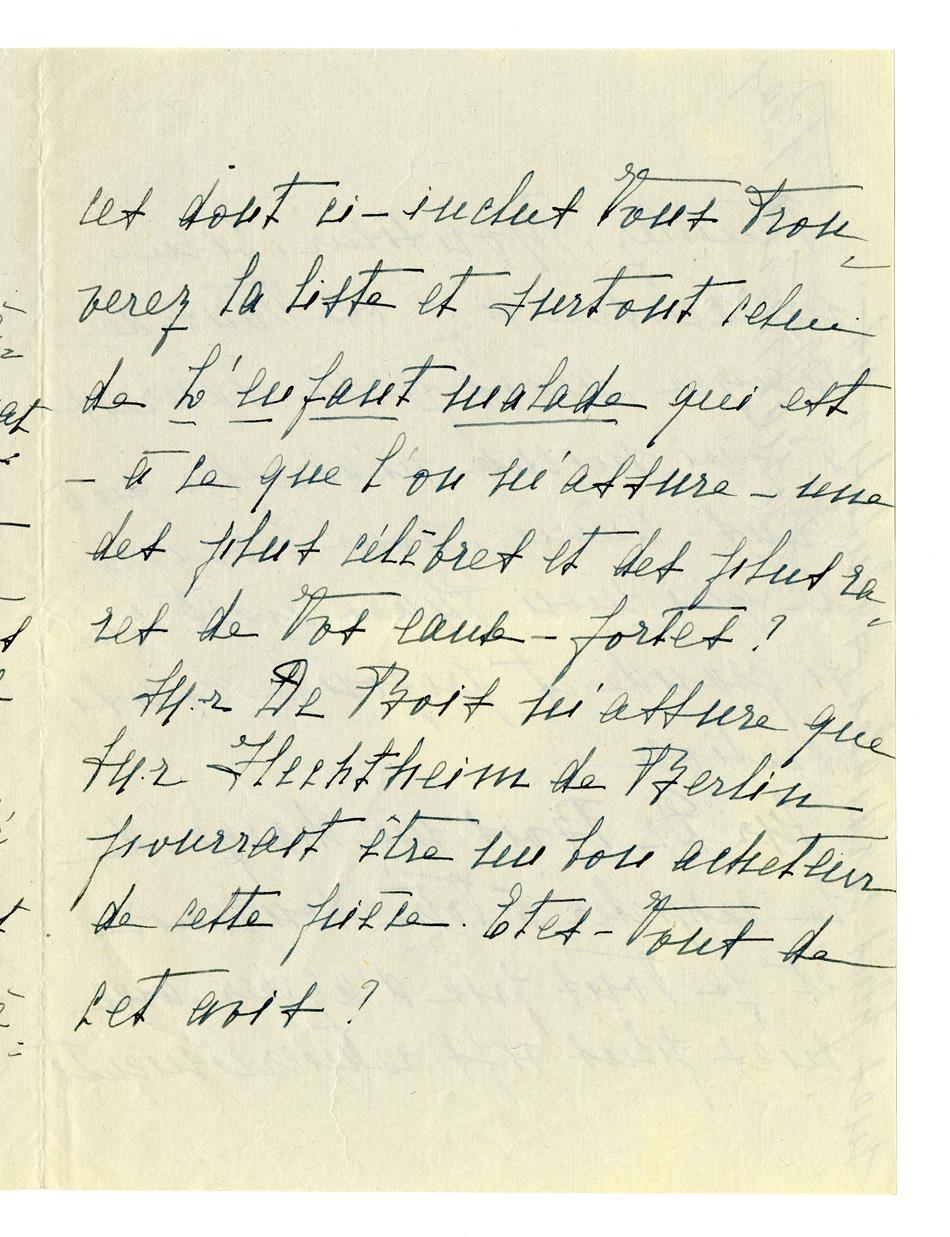 ces dont ci-inclus Vous trou-
verez la liste et surtout celui
de L'enfant malade qui est
- à ce que l'on m'assure - une
des plus célèbres et des plus ra-
res de Vos eaux-fortes ?
Mr De Bois m'assure que
Mr Hechtheim de Berlin
pourrait être un bon acheteur
de cette pièce. Etes-Vous de
cet avis ?